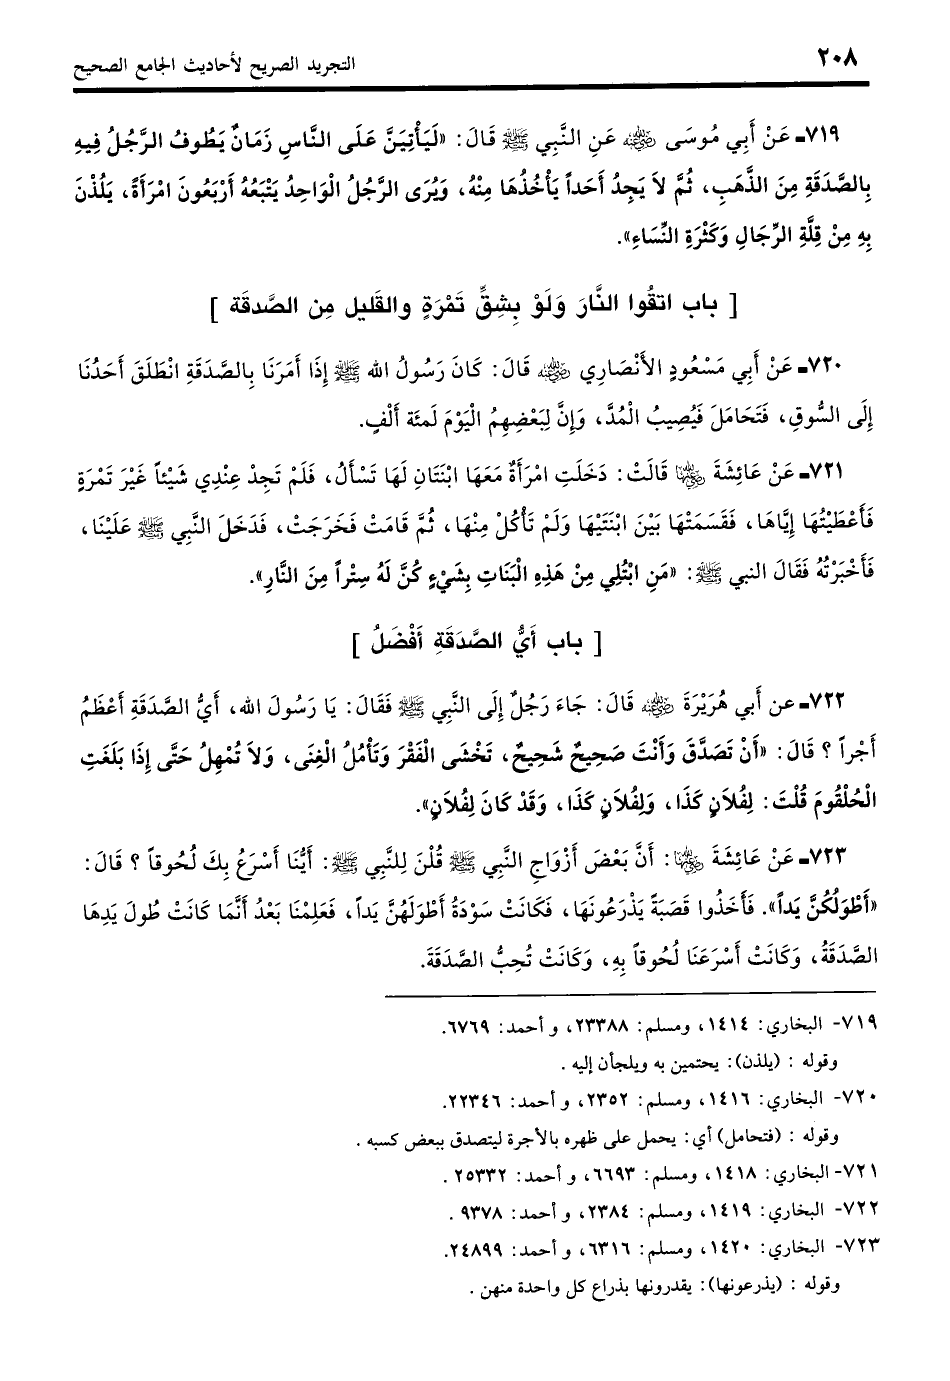 ٢٠٨
التجريد الصريح لأحاديث الجامع الصحيح
٧١٩ـ عَنْ أَبِي مُوسَى رضي الله عنه عَنِ النَّبِي ﷺ قَالَ: «لَيَأْتِيَنَّ عَلَى النَّاسِ زَمَانٌ يَطُوفُ الرَّجُلُ فِيهِ
بِالصَّدَقَةِ مِنَ الذَّهَبِ، ثُمَّ لاَ يَجِدُ أَحَداً يَأْخُذُهَا مِنْهُ، وَيُرَى الرَّجُلُ الْوَاحِدُ يَتْبَعُهُ أَرْبَعُونَ امْرَأَةً، يَلُذْنَ
بِهِ مِنْ قِلَّةِ الرِّجَالِ وَكَثْرَةِ النِّسَاءِ».
[ باب اتقُوا النَّارَ وَلَوْ بِشِقِّ تَمْرَةٍ والقَليل مِن الصدقَة ]
٧٢٠ـ عَنْ أَبِي مَسْعُودٍ الأَنْصَارِي رضي الله عنه قَالَ: كَانَ رَسُولُ الله ﷺ إِذَا أَمَرَنَا بِالصَّدَقَةِ انْطَلَقَ أَحَدُنَا
إِلَى السُّوقِ، فَتَحَامَلَ فَيُصِيبُ الْمُدَّ، وَإِنَّ لِبَعْضِهِمُ الْيَوْمَ لَمئَة أَلْفٍ.
٧٢١ـ عَنْ عَائِشَةَ رضي الله عنها قَالَتْ: دَخَلَتِ امْرَأَةٌ مَعَهَا ابْنَتَانِ لَهَا تَسْأَلُ، فَلَمْ تَجِدْ عِنْدِي شَيْئاً غَيْرَ تَمْرَةٍ
فَأَعْطَيْتُهَا إِيَّاهَا، فَقَسَمَتْهَا بَيْنَ ابْنَتَيْهَا وَلَمْ تَأْكُلْ مِنْهَا، ثُمَّ قَامَتْ فَخَرَجَتْ، فَدَخَلَ النَّبِي ﷺ عَلَيْنَا،
فَأَخْبَرْتُهُ فَقَالَ النبي ﷺ: «مَنِ ابْتُلِي مِنْ هَذِهِ الْبَنَاتِ بِشَيْءٍ كُنَّ لَهُ سِتْراً مِنَ النَّارِ».
[ باب أَيُّ الصَّدَقَةِ أَفْضَلُ ]
٧٢٢ـ عن أَبي هُرَيْرَةَ رضي الله عنه قَالَ: جَاءَ رَجُلٌ إِلَى النَّبِي ﷺ فَقَالَ: يَا رَسُولَ الله، أَيُّ الصَّدَقَةِ أَعْظَمُ
أَجْراً ؟ قَالَ: «أَنْ تَصَدَّقَ وَأَنْتَ صَحِيحٌ شَحِيحٌ، تَخْشَى الْفَقْرَ وَتَأْمُلُ الْغِنَى، وَلاَ تُمْهِلُ حَتَّى إِذَا بَلَغَتِ
الْحُلْقُومَ قُلْتَ: لِفُلاَنٍ كَذَا، وَلِفُلاَنٍ كَذَا، وَقَدْ كَانَ لِفُلاَنٍ».
٧٢٣ـ عَنْ عَائِشَةَ رضي الله عنها: أَنَّ بَعْضَ أَزْوَاجِ النَّبِي ﷺ قُلْنَ لِلنَّبِي ﷺ: أَيُّنَا أَسْرَعُ بِكَ لُحُوقاً ؟ قَالَ:
«أَطْوَلُكُنَّ يَداً». فَأَخَذُوا قَصَبَةً يَذْرَعُونَهَا، فَكَانَتْ سَوْدَةُ أَطْوَلَهُنَّ يَداً، فَعَلِمْنَا بَعْدُ أَنَّمَا كَانَتْ طُولَ يَدِهَا
الصَّدَقَةُ، وَكَانَتْ أَسْرَعَنَا لُحُوقاً بِهِ، وَكَانَتْ تُحِبُّ الصَّدَقَةَ.
٧١٩- البخاري: ١٤١٤، ومسلم: ٢٣٣٨٨، و أحمد: ٦٧٦٩.
وقوله : (يلذن): يحتمين به ويلجأن إليه .
٧٢٠- البخاري: ١٤١٦، ومسلم: ٢٣٥٢، و أحمد: ٢٢٣٤٦.
وقوله : (فتحامل) أي: يحمل على ظهره بالأجرة ليتصدق ببعض كسبه .
٧٢١- البخاري: ١٤١٨، ومسلم: ٦٦٩٣، و أحمد: ٢٥٣٣٢ .
٧٢٢- البخاري: ١٤١٩، ومسلم: ٢٣٨٤، و أحمد: ٩٣٧٨ .
٧٢٣- البخاري: ١٤٢٠، ومسلم: ٦٣١٦، و أحمد: ٢٤٨٩٩.
وقوله : (يذرعونها): يقدرونها بذراع كل واحدة منهن .